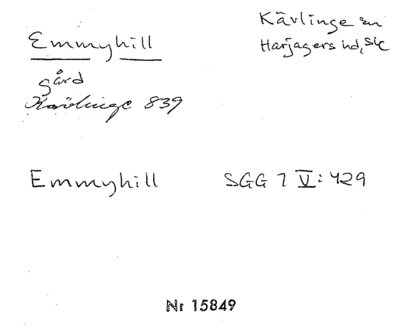 Emmyhill
Kävlinge sn
Harjagers hd, Sk
gård
Kävlinge 839
Emmyhill SGG 7 V: 429
Nr 15849